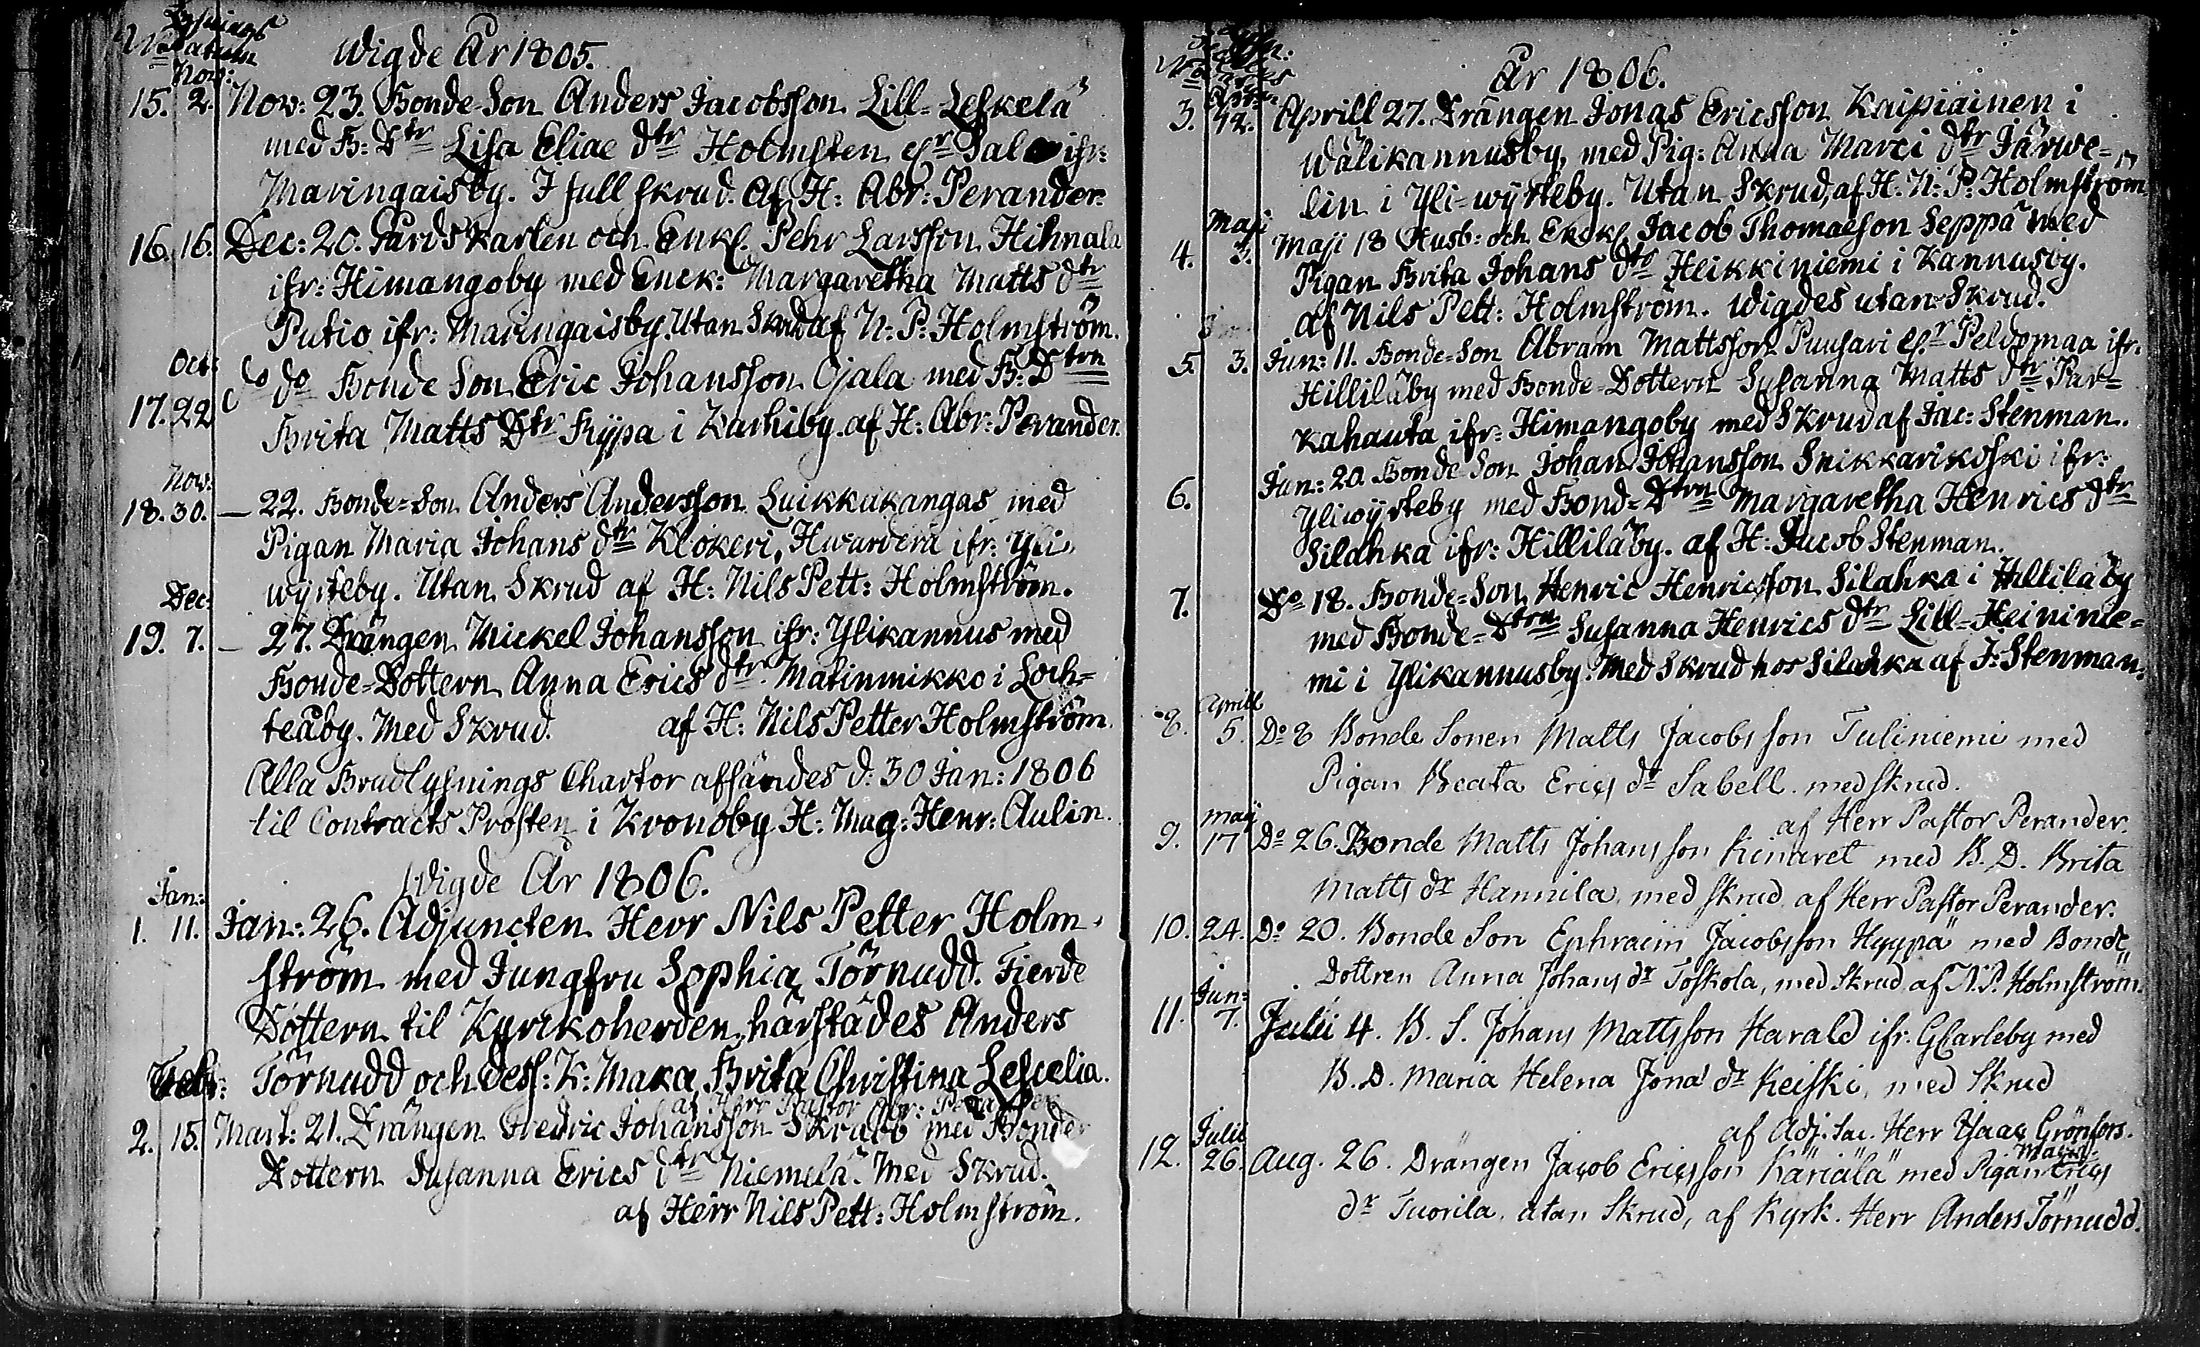 Lysnings
No Datum Wigde År 1805.
Nov:
15. 2. Nov: 23. Bonde-Son Anders Jacobsson Lill-Leskelä
med B: Dtr Lisa Eliae dtr Holmsten elr Salo ifr:
Maringaisby. I full skrud. Af H: Abr: Perander.
16. 16. Dec: 20. Gårdskarlen och Enkl. Pehr Larsson Hihnala
ifr: Himangoby med Enck: Margaretha Matts dtr
Putio ifr: Maringaisby. Utan Skrud af N: P: Holmström.
Oct:
17. 22 do do Bonde Son Eric Johansson Ojala med B: Dtrn
Brita Matts Dtr Kypa i Karhiby. af H: Abr: Perander.
Nov:
18. 30. — 22. Bonde-Son Anders Andersson Luikkukangas med
Pigan Maria Johans dtr Klökeri, Hwarderä ifr: Yli
wyrteby. Utan Skrud af H: Nils Pett: Holmström.
Dec:
19. 7. — 27. Drängen Mickel Johansson ifr: Ylikannus med
Bonde-Dottern Anna Erics dtr Matinmikko i Loch=
teåby. Med Skrud. af H: Nils Petter Holmström.
Alla Brudlysnings Chartor afsändes d: 30 Jan: 1806
til Contracts Prosten i Kronoby H: Mag: Henr: Aulin.
Wigde År 1806.
Jan:
1. 11. Jan: 26. Adjuncten Herr Nils Petter Holm-
ström med Jungfru Sophia Törnudd. Fierde
Dottern til Kyrkoherden härstädes Anders
Febr: Törnudd och dess: K: Maka Brita Christina Lescelia.
af Herr Pastor Abr: Perander
2. 15. Mart: 21. Drängen Fredric Johansson Skrabb med Bonde
Dottern Susanna Erics dtr Niemelä. Med Skrud.
af Herr Nils Pett: Holmström.
År 1806.
3. 12. Aprill 27. Drängen Jonas Ericsson Kaipiainen i
Wälikannusby, med Pig: Anna Marci dtr Järwe=
lin i Yli=wyrteby. Utan Skrud, af H: N: P: Holmström
Maji
4. 3. Maji 18 Husb: och Enckl. Jacob Thomasson Seppä med
Pigan Brita Johans dtr Heikkiniemi i Kannusby.
af Nils Pett: Holmström. Wigdes utan Skrud.
5. 3. Jun: 11. Bonde-Son Abram Mattsson Puusari elr Peldomaa ifr:
Hillilåby med Bonde-Dottern Susanna Matts dtr Par=
kahauta ifr: Himangoby med Skrud af Jac: Stenman.
6. Jun: 20. Bonde Son Johan Johansson Snikkarikoski ifr:
Yliwyrteby med Bond=Dtrn Margaretha Henrics dtr
Silahka ifr: Hillilåby. af H: Jacob Stenman.
7. Do 18. Bonde=Son Henric Henricsson Silahka i Hillilåby
med Bonde=Dtrn Susanna Henrics dtr Lill-Heininie=
mi i Ylikannusby. Med Skrud hos Silahka af J: Stenman.
Aprill
8. 5. Do 8 Bonde Sonen Matts Jacobsson Tuliniemi med
Pigan Beata Erics dr Sabell. med skrud.
af Herr Pastor Perander.
Maij
9. 17 Do 26. Bonde Matts Johansson Kinaret med B. D. Brita
Matts dr Hannila, med skrud af Herr Pastor Perander.
10. 24. Do 20. Bonde Son Ephraim Jacobsson Hyypä med Bonde
Dottren Anna Johans dr Toskola, med Skrud af N. P. Holmström.
Jun:
11. 7. Julii 4. B. S. Johans Mattsson Harald ifr. GCarleby med
B. D. Maria Helena Jona dr Keiski, med Skrud
af Adj. Sac. Herr Isaac Grönfors.
Julii
12. 26. Aug. 26. Drängen Jacob Ericsson Käriälä med Pigan Maria Erics
dr Tuorila, utan Skrud, af Kyrk. Herr Anders Törnudd.